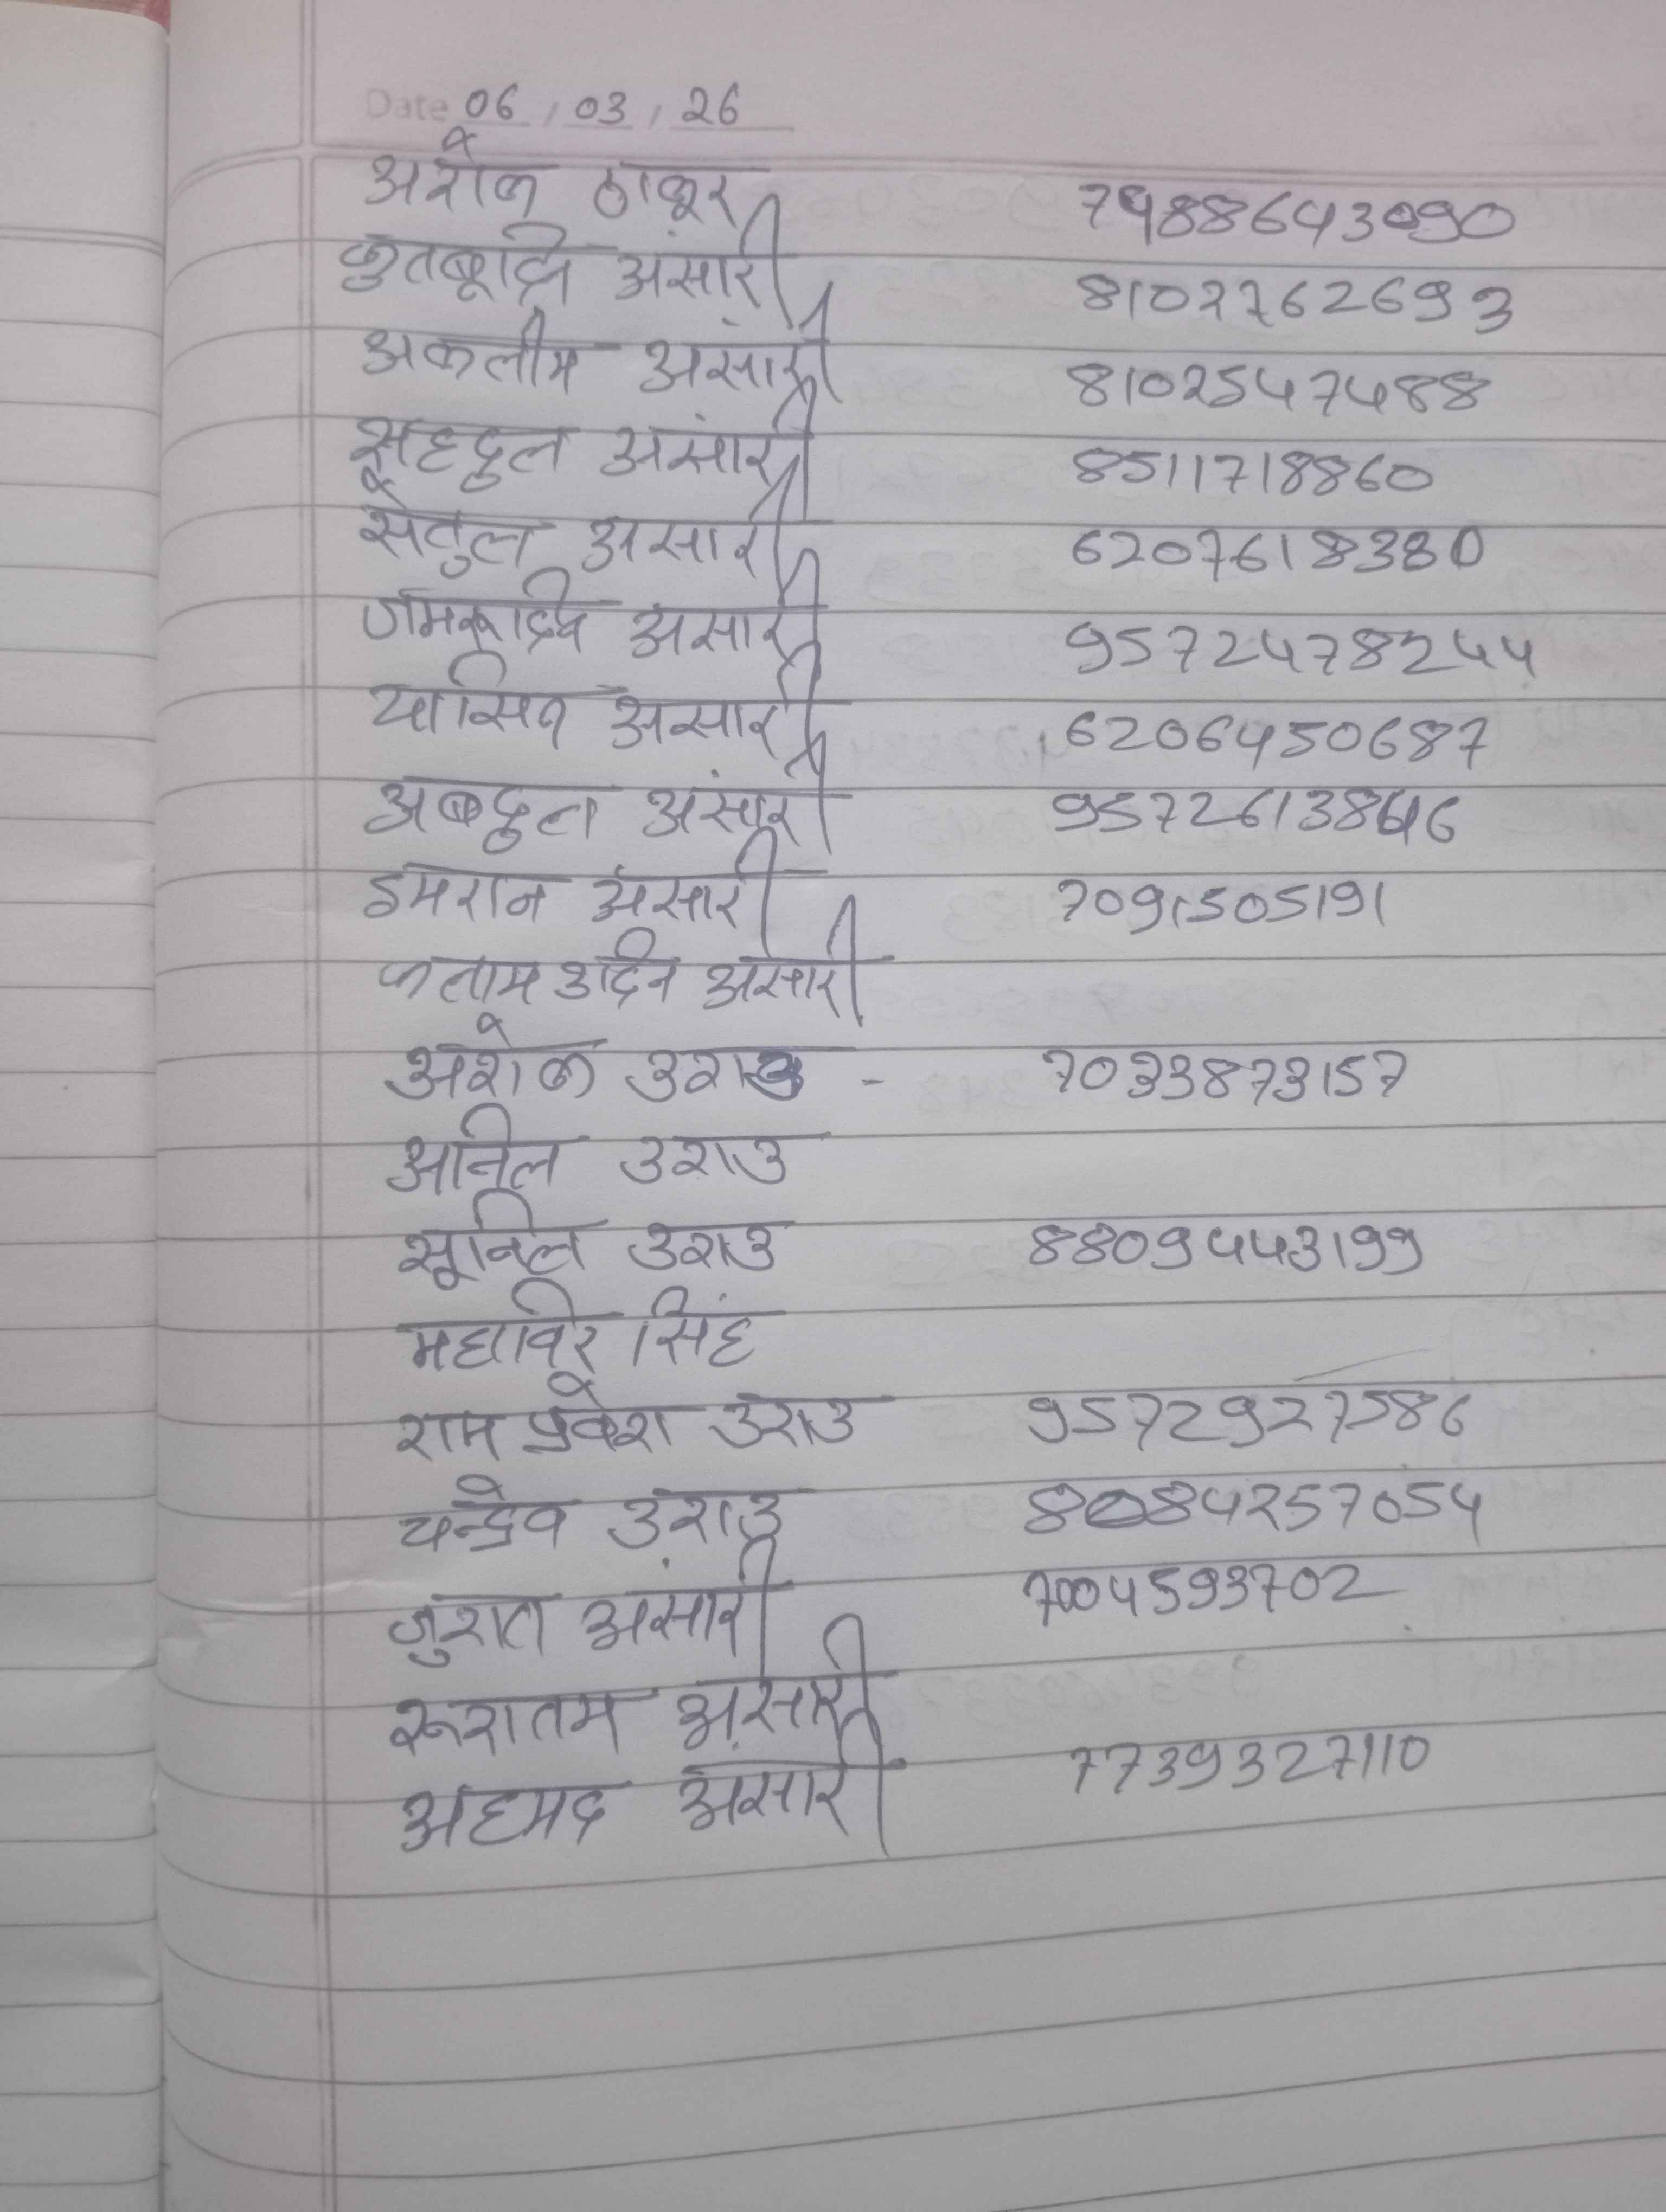 Date 06 / 03 / 26
अशोक ठाकूर 74886643090
कुतबूदिन अंसारी 8102762693
अकलीम अंसारी 8102547488
सूहदुल अंसारी 8511718860
सेतुल अंसारी 6207618380
अंसारी 9572478244
यासिन अंसारी 6206450687
अबदुल अंसारी 9572613846
इमरान अंसारी 7091505191
कलाम उदिन अंसारी
अशोक उराउ - 7033873157
अनिल उराउ
सूनिल उराउ 8809443199
महाविर सिंह
राम प्रवेश उराउ 9572927586
चन्द्रेव उराउ 8084257054
जुरात अंसारी 7004593702
रूरातम अंसारी
अहमद अंसारी 7739327110